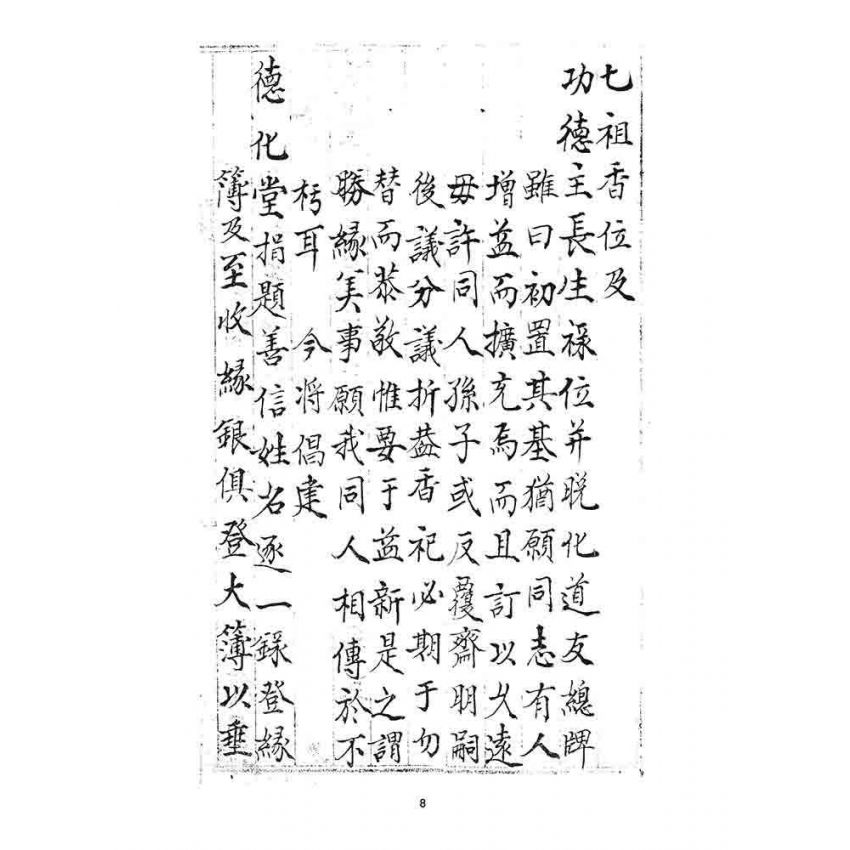 七祖香位及
功德主長生祿位并脱化道友總牌
雖曰初置其基猶願同志有人
增益而擴充焉而且訂以久遠
毋許同人孫子或反覆齋明嗣
後議分議折葢香祀必期于勿
替而恭敬惟要于益新是之謂
勝緣美事願我同人相傳於不
朽耳　今將倡建
德化堂捐題善信姓名逐一錄登緣
簿及至收緣銀俱登大簿以垂
8